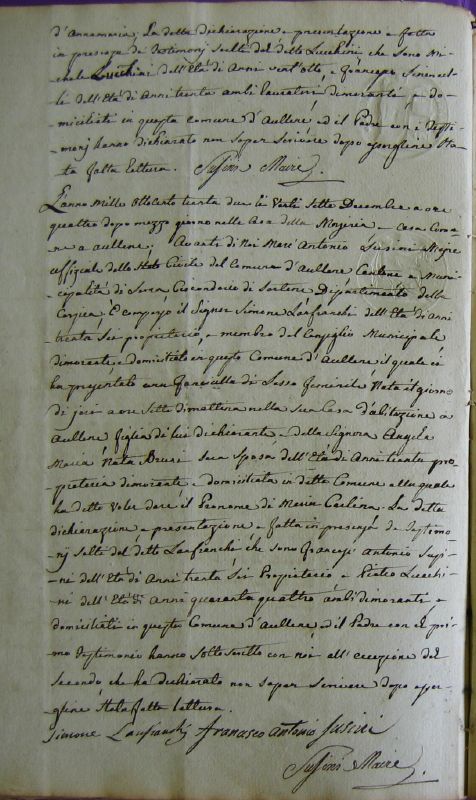 d'Annamaria, La detta dichiarazione e presentazione e fatta
in presenza de Testimonj scelti dal detto Lucchini che sono Mi-
chele Lucchini dell'Età di Anni vent'otto, e Francesco
dell'Età di Anni trenta ambi Lavoratori dimoranti e do-
miciliati in questa comune d'Aullene, ed il Padre con i Testi-
monj hanno dichiarato non saper scrivere dopo essergliene Sta-
ta fatta Lettura. Susini Maire
L'anno Mille Ottocento trenta due li Venti Sette Decembre a ore
quattro dopo mezzo giorno nella Casa della Mayeria Casa Comu-
ne a aullene; Avanti di Noi Marc' Antonio Susini Mayre
uffiziale dello Stato Civile del Comune d'Aullene Cantone e Muni-
cipalità di Serra Circondario di Sartene Dipartimento della
Corsica E comparso il Signor Simone Lanfranchi dell'Età di Anni
trenta Sei proprietario, e membro del Consiglio Municipale
dimorante e domiciliato in questo Comune d'Aullene il quale ci
ha presentato una fanciulla di Sesso feminile Nata il giorno
di jeri a ore Sette di mattina nella sua Casa d'abitazione a
Aullene figlia di lui dichiarante, e della Signora Angela
Maria Nata Sua Sposa dell'Età di Anni trenta pro-
prietaria dimorante e domiciliata in detto Comune alla quale
ha detto Voler dare il Prenome di Maria La detta
dichiarazione e presentazione e fatta in presenza de Testimo-
nj Scelti dal detto Lanfranchi che sono Francesco Antonio Susi-
ni dell'Età di Anni trenta Sei Proprietario e Pietro Lucchi-
ni dell'Età di Anni quaranta quattro ambi dimoranti e
domiciliati in questo Comune d'Aullene, ed il Padre con il pri-
mo Testimonio hanno Sottoscritto con noi all'eccezione del
Secondo che ha dichiarato non saper Scrivere dopo esser-
gliene Stata fatta Lettura.
Simone Lanfranchi Francesco Antonio Susini
Susini Maire